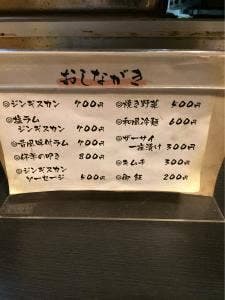 おしながき
◎ジンギスカン 700円
◎塩ラム
ジンギスカン 700円
◎昔風味付ラム 700円
◎行者の叩き 800円
◎ジンギスカン
ソーセージ 500円
◎焼き野菜 500円
◎和風冷麺 600円
◎ザーサイ
一夜漬け 300円
◎キムチ 300円
◎御飯 200円